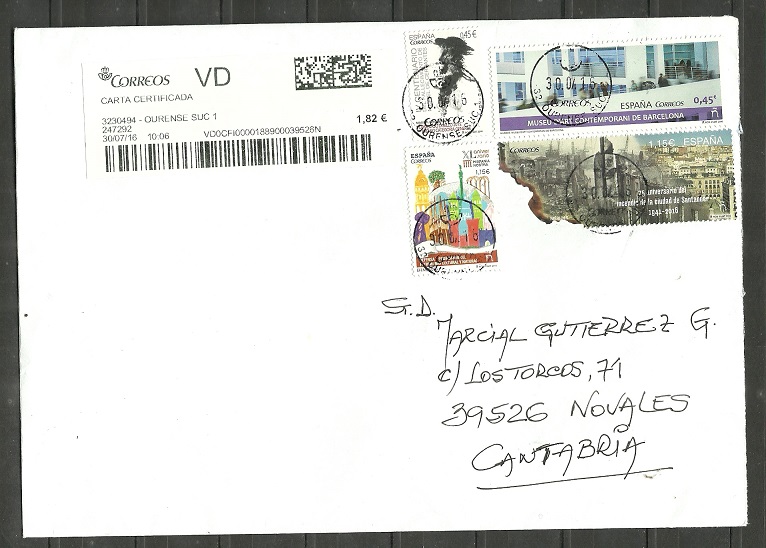 CORREOS VD
CARTA CERTIFICADA
3230494 - OURENSE SUC 1
247292 1,82 €
30/07/16 10:06 VD0CFI0000188900039526N
ESPAÑA 0,45€
CORREOS
ESPAÑA CORREOS 0,45€
MUSEU D'ART CONTEMPORANI DE BARCELONA
CORREOS 1,15€ ESPAÑA
aniversario del
incendio de la ciudad de Santander
1941-2016
ESPAÑA
CORREOS
XL aniversario
HISPANIA NOSTRA
1,15€
S.D.
MARCIAL GUTIERREZ G.
C/ LOSTORCOS, 71
39526 NOVALES
CANTABRIA